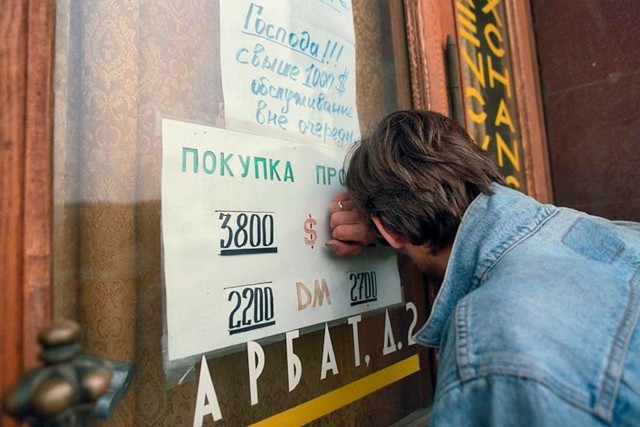 Господа!!!
свыше 1000 $
обслуживание
вне очереди
ПОКУПКА
3800 $
2200 DM 2700
АРБАТ, Д. 2
EXCHANGE